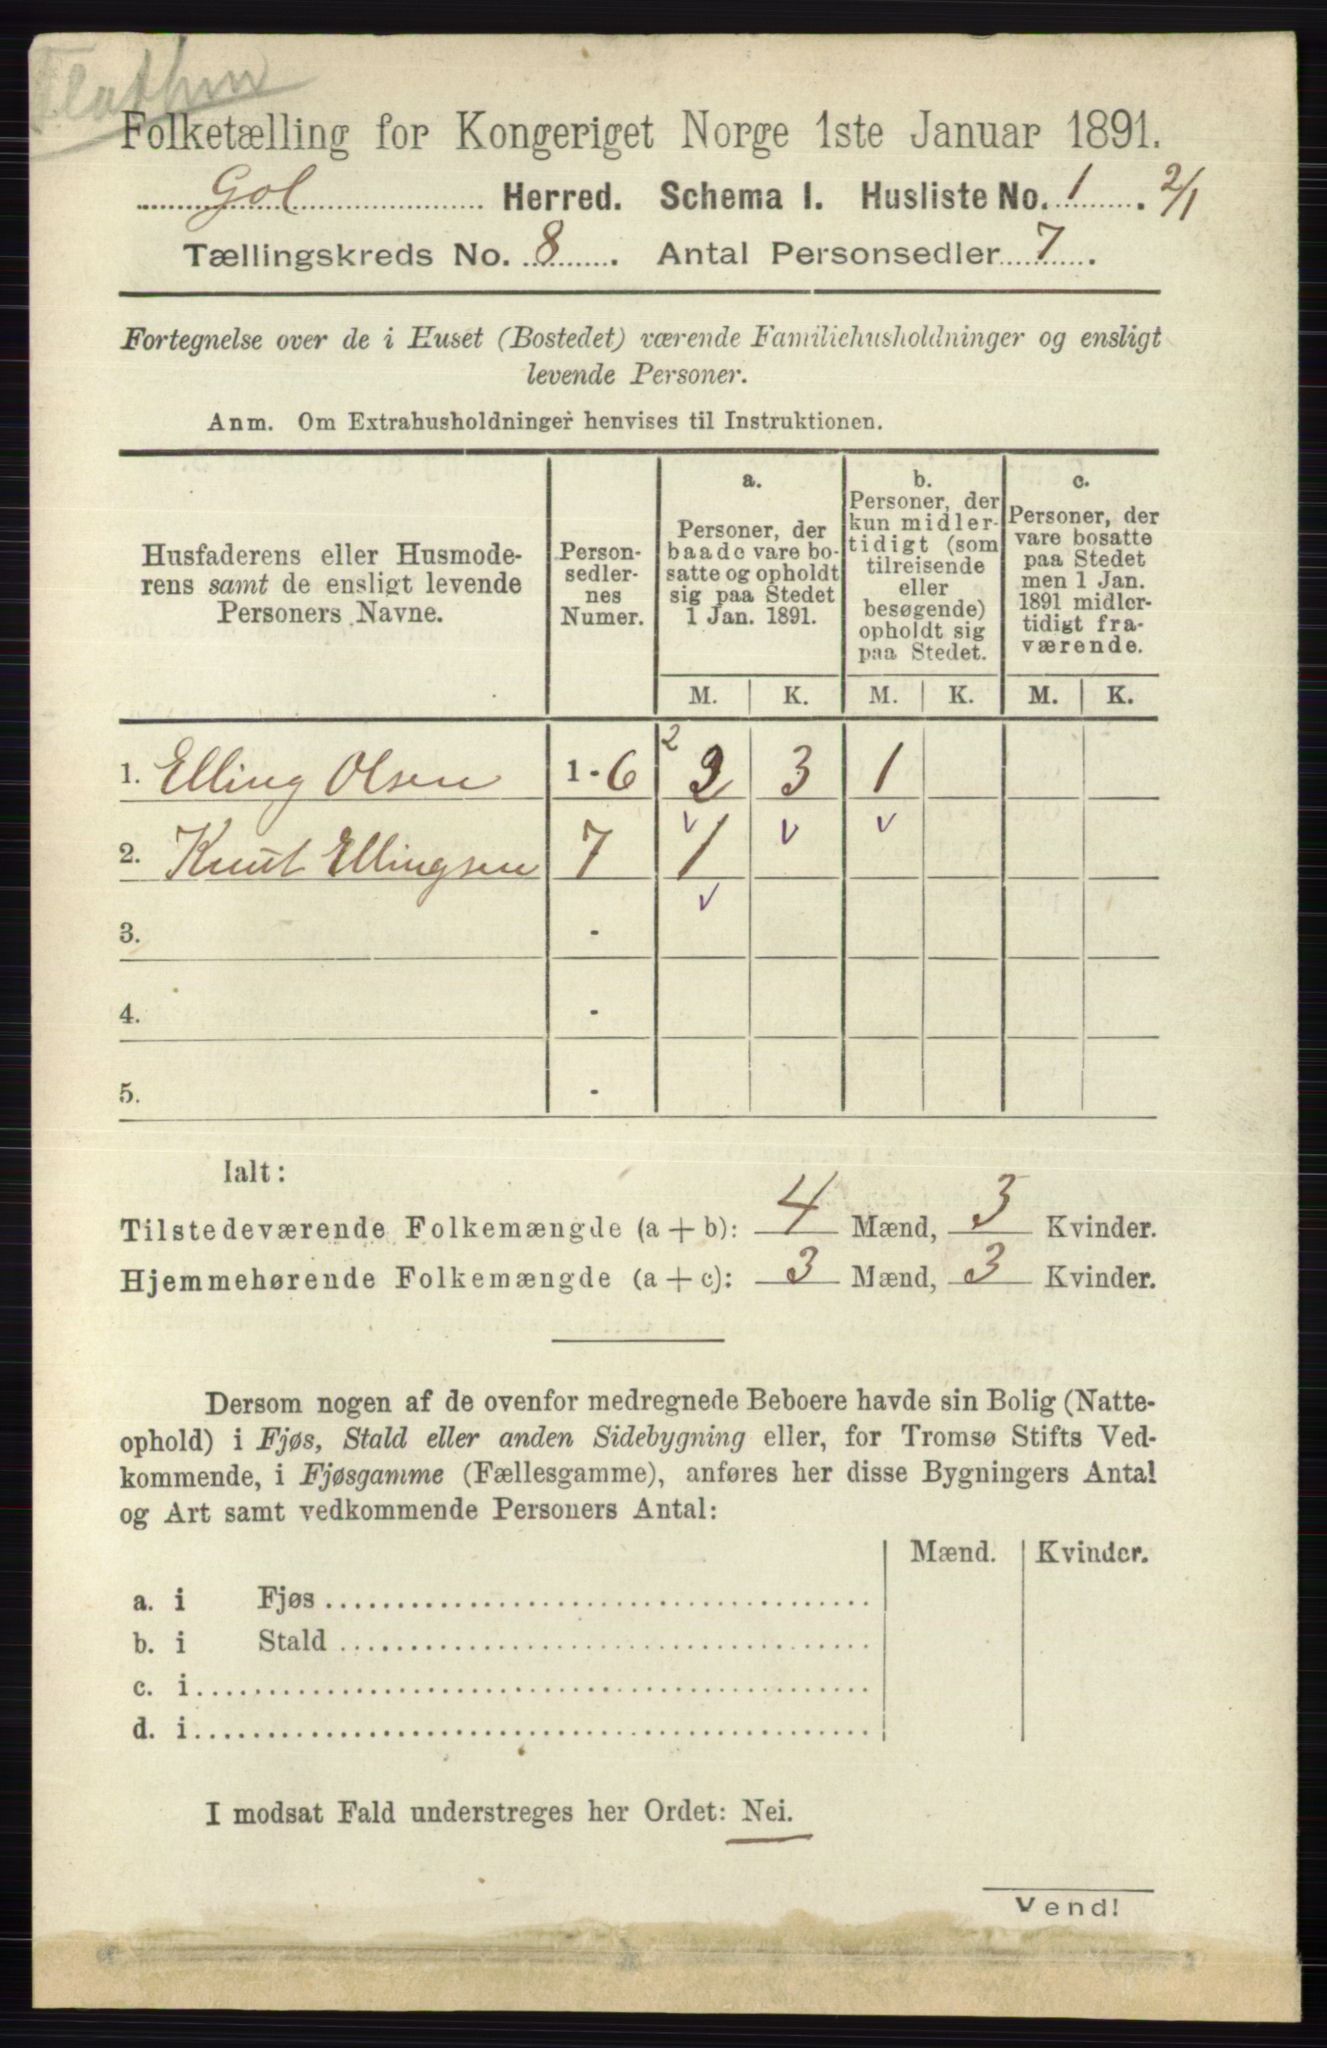 Folketælling for Kongeriget Norge 1ste Januar 1891.
Gol Herred. Schema I. Husliste No. 1. 2/1
Tællingskreds No. 8. Antal Personsedler 7.
Fortegnelse over de i Huset (Bostedet) værende Familiehusholdninger og ensligt
levende Personer.
Anm. Om Extrahusholdninger henvises til Instruktionen.
Husfaderens eller Husmode-
rens samt de ensligt levende
Personers Navne.
Person-
sedler-
nes
Numer.
a.
Personer, der
baade vare bo-
satte og opholdt
sig paa Stedet
1 Jan. 1891.
b.
Personer, der
kun midler-
tidigt (som
tilreisende
eller
besøgende)
opholdt sig
paa Stedet.
c.
Personer, der
vare bosatte
paa Stedet
men 1 Jan.
1891 midler-
tidigt fra-
værende.
M. K. M. K. M. K.
2
1. Elling Olsen 1 - 6 2 3 1
2. Knut Ellingsen 7 1
3. -
4. -
5. -
Ialt:
Tilstedeværende Folkemængde (a + b): 4 Mænd, 3 Kvinder.
Hjemmehørende Folkemængde (a + c): 3 Mænd, 3 Kvinder.
Dersom nogen af de ovenfor medregnede Beboere havde sin Bolig (Natte-
ophold) i Fjøs, Stald eller anden Sidebygning eller, for Tromsø Stifts Ved-
kommende, i Fjøsgamme (Fællesgamme), anføres her disse Bygningers Antal
og Art samt vedkommende Personers Antal:
Mænd. Kvinder.
a. i Fjøs
b. i Stald
c. i
d. i
I modsat Fald understreges her Ordet: Nei.
Vend!